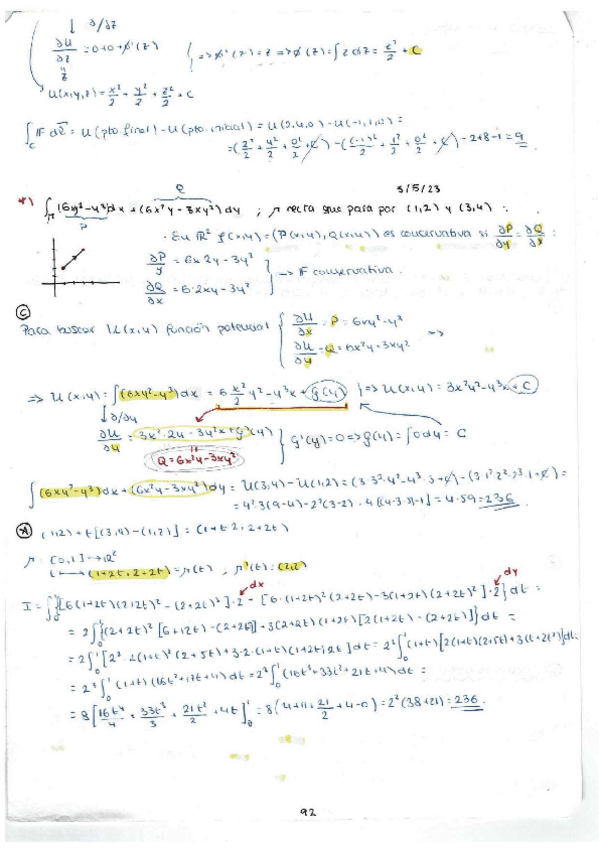 ↓ ∂/∂z
∂U/∂z = 0+0+φ'(z) } => φ'(z) = z => φ(z) = ∫ z dz = z²/2 + C
z
U(x,y,z) = x²/2 + y²/2 + z²/2 + C
∫_C IF dr = U(pto.final) - U(pto.initial) = U(2,4,0) - U(-1,1,0) =
= (2²/2 + 4²/2 + 0²/2 + C) - ((-1)²/2 + 1²/2 + 0²/2 + C) = 2+8-1 = 9
Q 3/5/23
∫ (6xy²-y³)dx + (6x²y-3xy²)dy ; r recta que pasa por (1,2) y (3,4) :
P
· En IR² f(x,y) = (P(x,y), Q(x,y)) es conservativa si ∂P/∂y = ∂Q/∂x :
∂P/y = 6x2y-3y²
∂Q/∂x = 6·2xy-3y² } → IF conservativa.
C
Para buscar U(x,y) función potencial { ∂U/∂x = P = 6xy²-y³
∂U/∂y = Q = 6x²y-3xy² =>
=> U(x,y) = ∫(6xy²-y³)dx = 6 x²/2 y² - y³x + g(y) } => U(x,y) = 3x²y²-y³x + C
↓ ∂/∂y
∂U/∂y = 3x²·2y - 3y²x + g'(y) } g'(y) = 0 => g(y) = ∫0dy = C
Q = 6x²y-3xy²
∫ (6xy²-y³)dx + (6x²y-3xy²)dy = U(3,4) - U(1,2) = (3·3²·4²-4³·3+C) - (3·1²·2²-2³·1+C) =
= 4²·3(9-4)-2²(3-2) = 4[(4·3·5)-1] = 4·59 = 236
A (1,2)+t[(3,4)-(1,2)] = (1+t2, 2+2t)
r: [0,1] → IR²
t → (1+2t, 2+2t) = r(t) ; r'(t) = (2,2)
dx dy
I = ∫₀¹ {[6(1+2t)(2+2t)² - (2+2t)³]·2 + [6·(1+2t)²(2+2t) - 3(1+2t)(2+2t)²]·2} dt =
= 2∫₀¹ {(2+2t)²[6+12t-(2+2t)] + 3(2+2t)(1+2t)[2(1+2t)-(2+2t)]} dt =
= 2∫₀¹ [2²·2(1+t)²(2+5t) + 3·2·(1+t)(1+2t)2t] dt = 2³∫₀¹ (1+t)[2(1+t)(2+5t)+3(t+2t²)]dt =
= 2³∫₀¹ (1+t)(16t²+17t+4) dt = 2³∫₀¹ (16t³+33t²+21t+4) dt =
= 8[16t⁴/4 + 33t³/3 + 21t²/2 + 4t]₀¹ = 8(4+11+21/2+4-0) = 2²(38+21) = 236
92